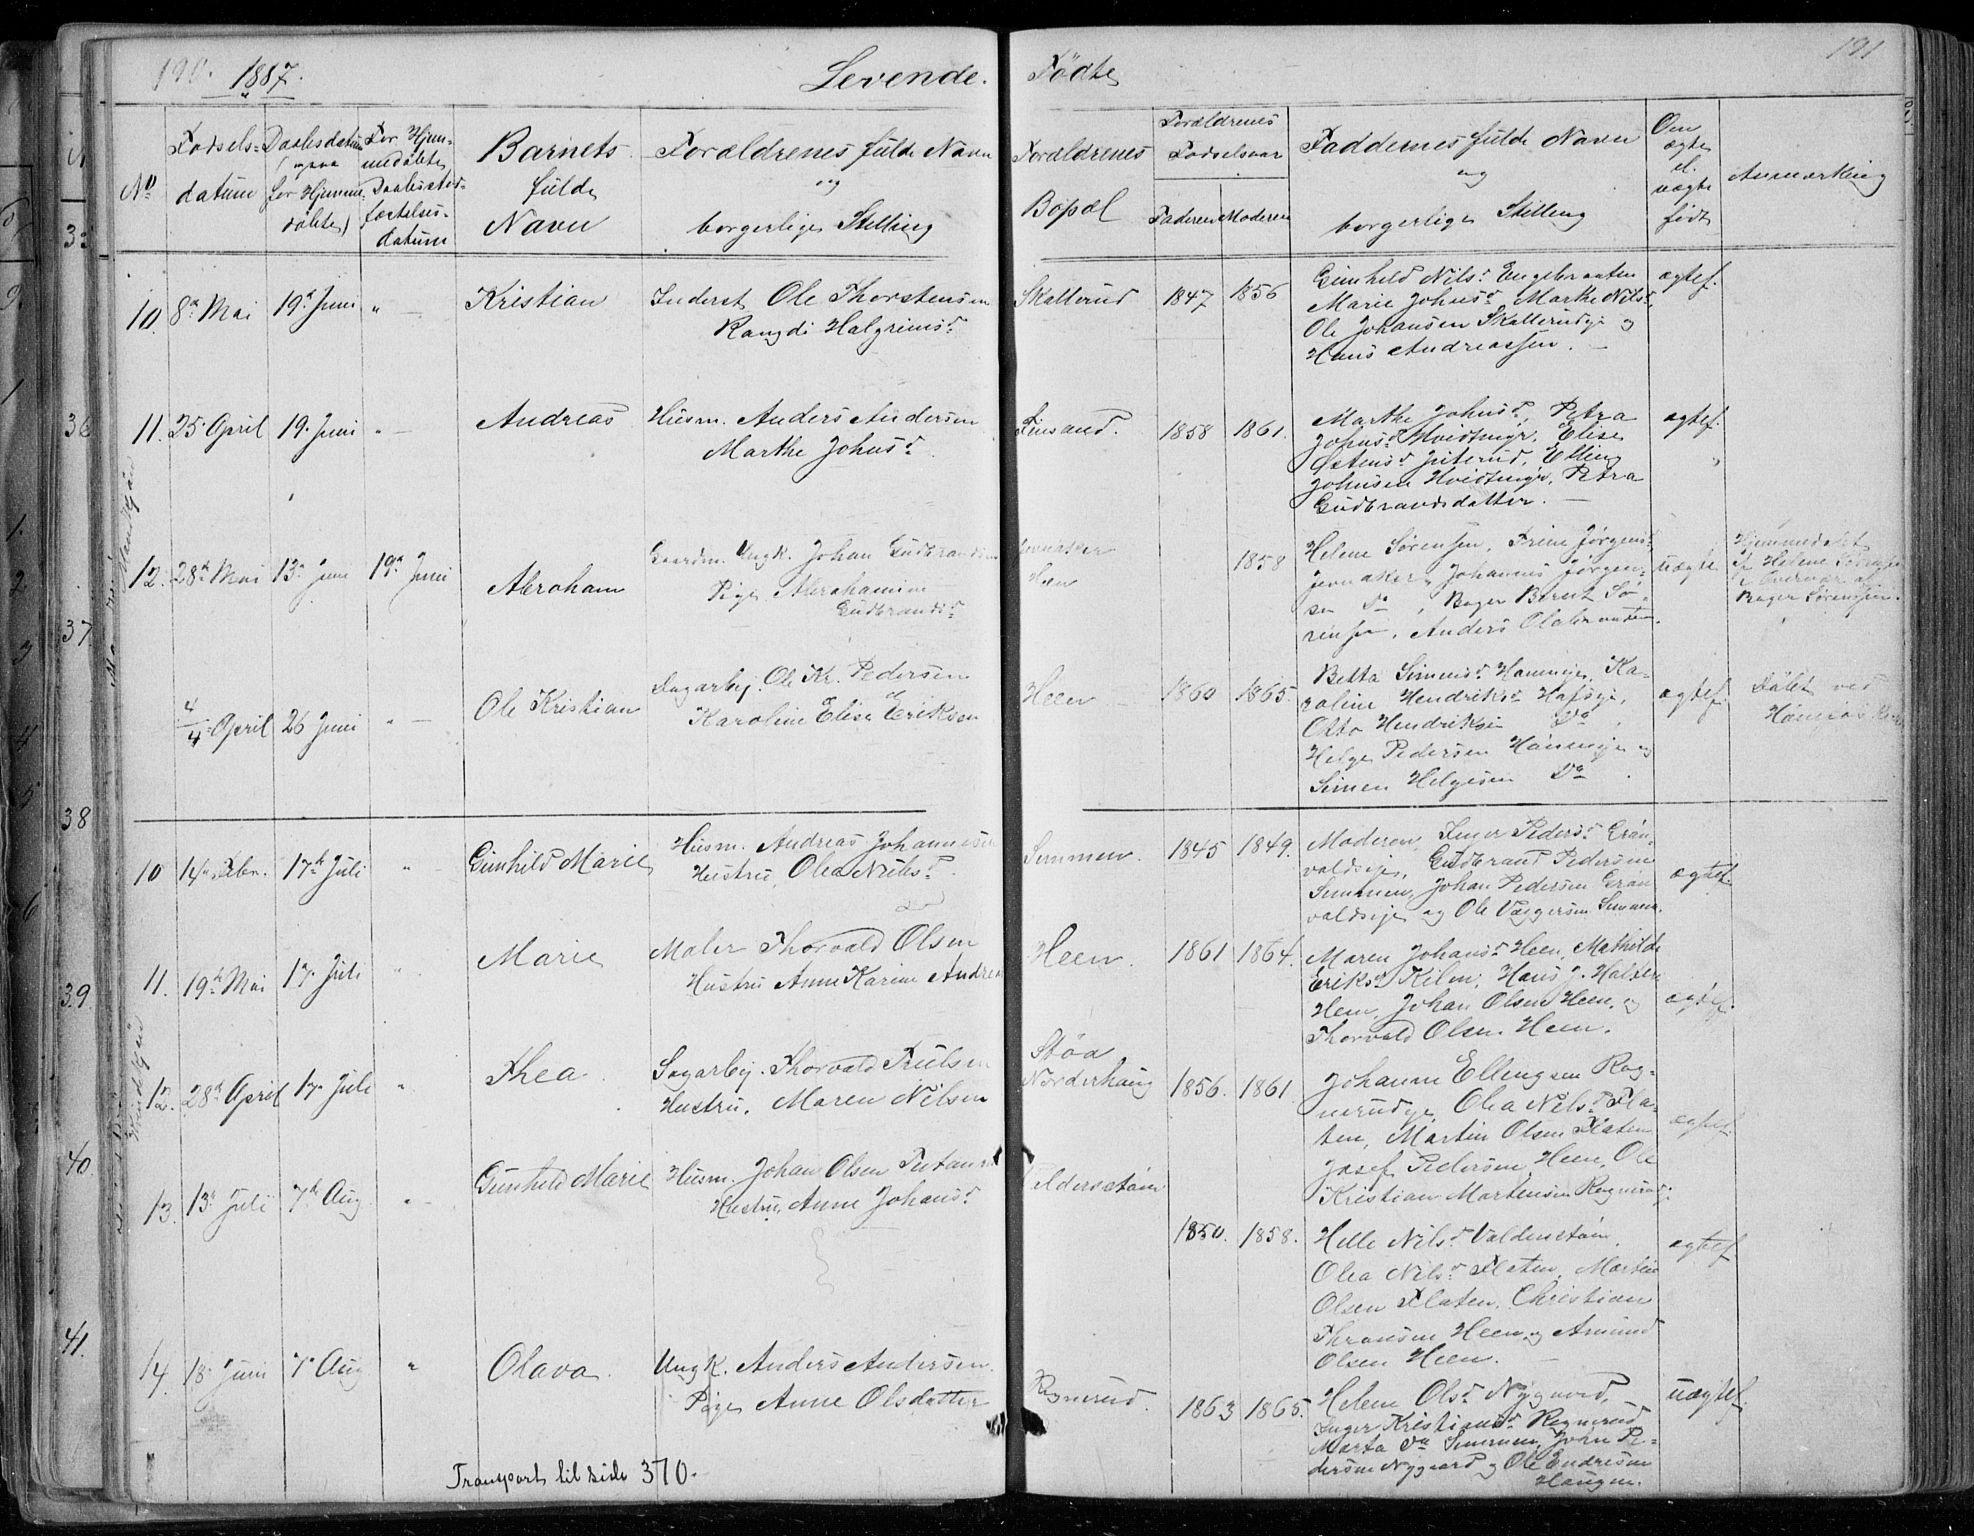 190. 1887. Levende. Fødte 191
No
Fødsels-
datum
Daabsdatum
(
for Hjemme
døbte)
For Hjem-
medøbte,
Daabsstad-
fæstelses-
datum
Barnets
fulde
Navn
Forældrenes fulde Navn
og
borgerlige Stilling
Forældrenes
Bopæl
Forældrenes
Fødselsaar
Faderen Moderen
Faddernes fulde Navn
og
borgerlige Stilling
Om
ægte
el.
uægte
født
Anmærkning
10. 8de Mai 19de Juni " — Kristian Inderst Ole Thorstensen
Rangdi Halgrimsd.
Skallerud 1847 1856
Gunhild Nilsd. Engebraaten
Marie Johnsd. Marthe Nilsd.
Ole Johansen Skallerudeje og
Hans Andreassen. —
ægtef.
11. 25. April 19. Juni " — Andreas Husm. Anders Andersen
Marthe Johnsd.
Finsand. 1858 1861.
Marthe Johnsd. Petra
Johnsd. Elise
Østensd. Elling
Johnsen Petra
Gudbrandsdatter. —
ægtef.
12. 28de Mai 13de Juni 19de Juni Abraham
Gaardm. Ungk. Johan Gudbrandsen
Pige Abrahamine
Gudbrandsd.
Jevnaker
Heen
1858
Helene Sørensen, Trine Jørgens
Jevnaker, Johannes Jørgen-
sen Do, Bager Bernt Sø-
rensen, Anders Olebraaten.
uægte
Hjemmedøbt
af Helene Sørensen
Overvær af
Bager Sørensen.
4
4 April 26 Juni " — Ole Kristian
Dagarbej. Ole Kr. Pedersen
Karoline Elise Eriksen
Heen 1860 1865.
Betta Simensd. Ka-
roline Hendriksd.
Otto Hendriksen Do
Helge Pedersen og
Simen Helgesen Do.
ægtef.
Døbt ved
10 14de Febr. 17de Juli " Gunhild Marie
Husm. Andreas Johannesen
Hustru Olea Nilsd.
Semmen. 1845 1849.
Moderen, Pedersd. Grøn-
valdseje, Gudbrand Pedersen
Semmen, Johan Pedersen Grøn-
valdseje og Ole Semmen.
ægtef.
11. 19de Mai 17. Juli " Marie
Maler Thorvald Olsen
Hustru Anne Karine Andrea
Heen. 1861 1864.
Maren Johansd. Heen, Mathilde
Eriksd. Kilen, Hans J.
Heen, Johan Olsen Heen, og
Thorvald Olsen Heen.
ægtef.
12. 28de April 17de Juli " Thea
Dagarbej. Thorvald Trulsen
Hustru, Maren Nilsen
Støa
Norderhaug 1856. 1861.
Johanne Ellingsen Rog-
nerudeje, Olea Nilsd. Fla-
ten, Martin Olsen Flaten,
Josef Pedersen Heen, Ole
Kristian Martensen Rognerud.
ægtef.
13. 13de Juli 7de Aug " Gunhild Marie
Husm. Johan Olsen
Hustru, Anne Johansd.
1850. 1858.
Helle Nilsd. Valdersetøen
Olea Nilsd. Flaten, Martin
Olsen Flaten, Christian
Heen og Amund
Olsen Heen. —
ægtef
14. 18. Juni 7de Aug " Olava.
Ungk. Anders Andersen.
Pige Anne Olsdatter
Rognerud. 1863 1865.
Helene Olsd. Nygaard,
Inger Kristiansd. Rognerud
Marta Do Semmen, John Pe-
dersen Nygaard og Ole Endresen
Haugen.
uægtef.
Transport til side 370.
36
37
38
39
40
41.